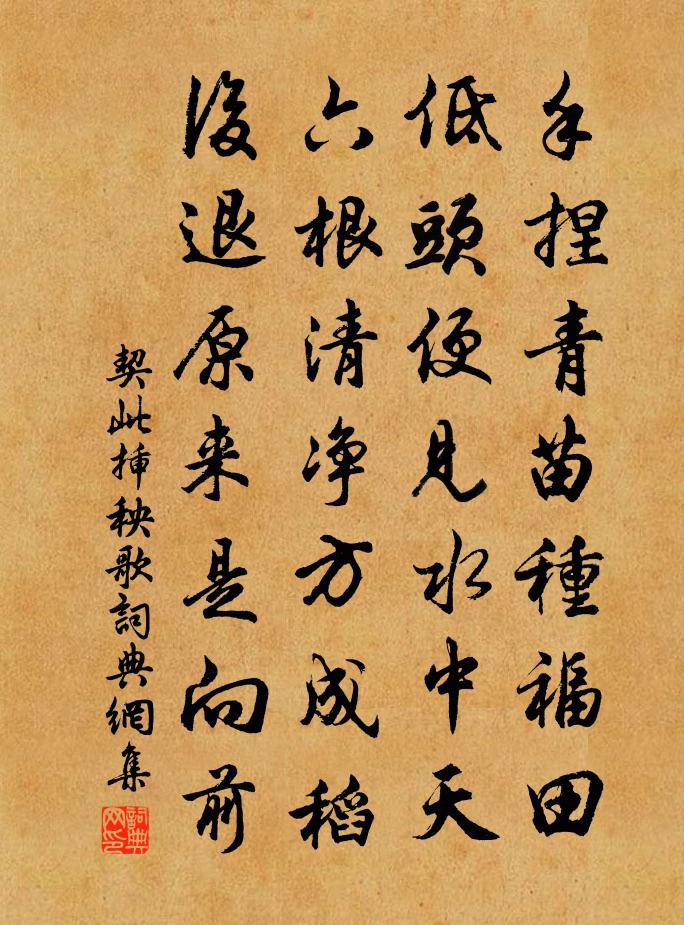 手捏青苗種福田
低頭便見水中天
六根清净方成稻
後退原来是向前
契此挿秧歌詞典網集
詞典网印